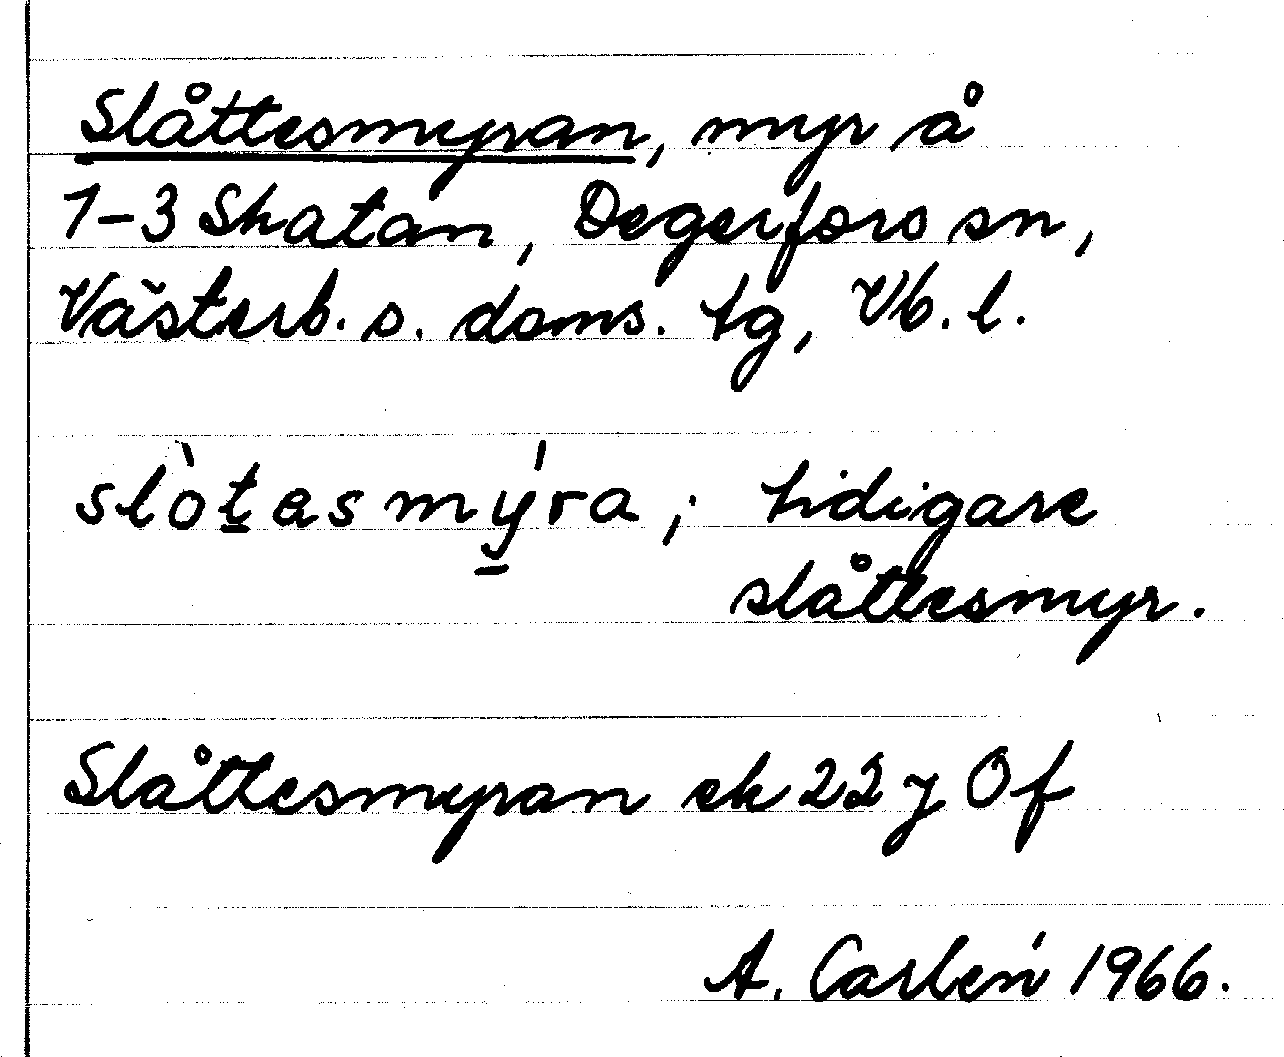 Slåttesmyran, myr å
1-3 Skatan, Degerfors sn,
Västerb. s. doms. tg, Vb. l.
slòt̲asmý̲ra; tidigare
slåttesmyr.
Slåttesmyran ek 22 j Of
A. Carlén 1966.